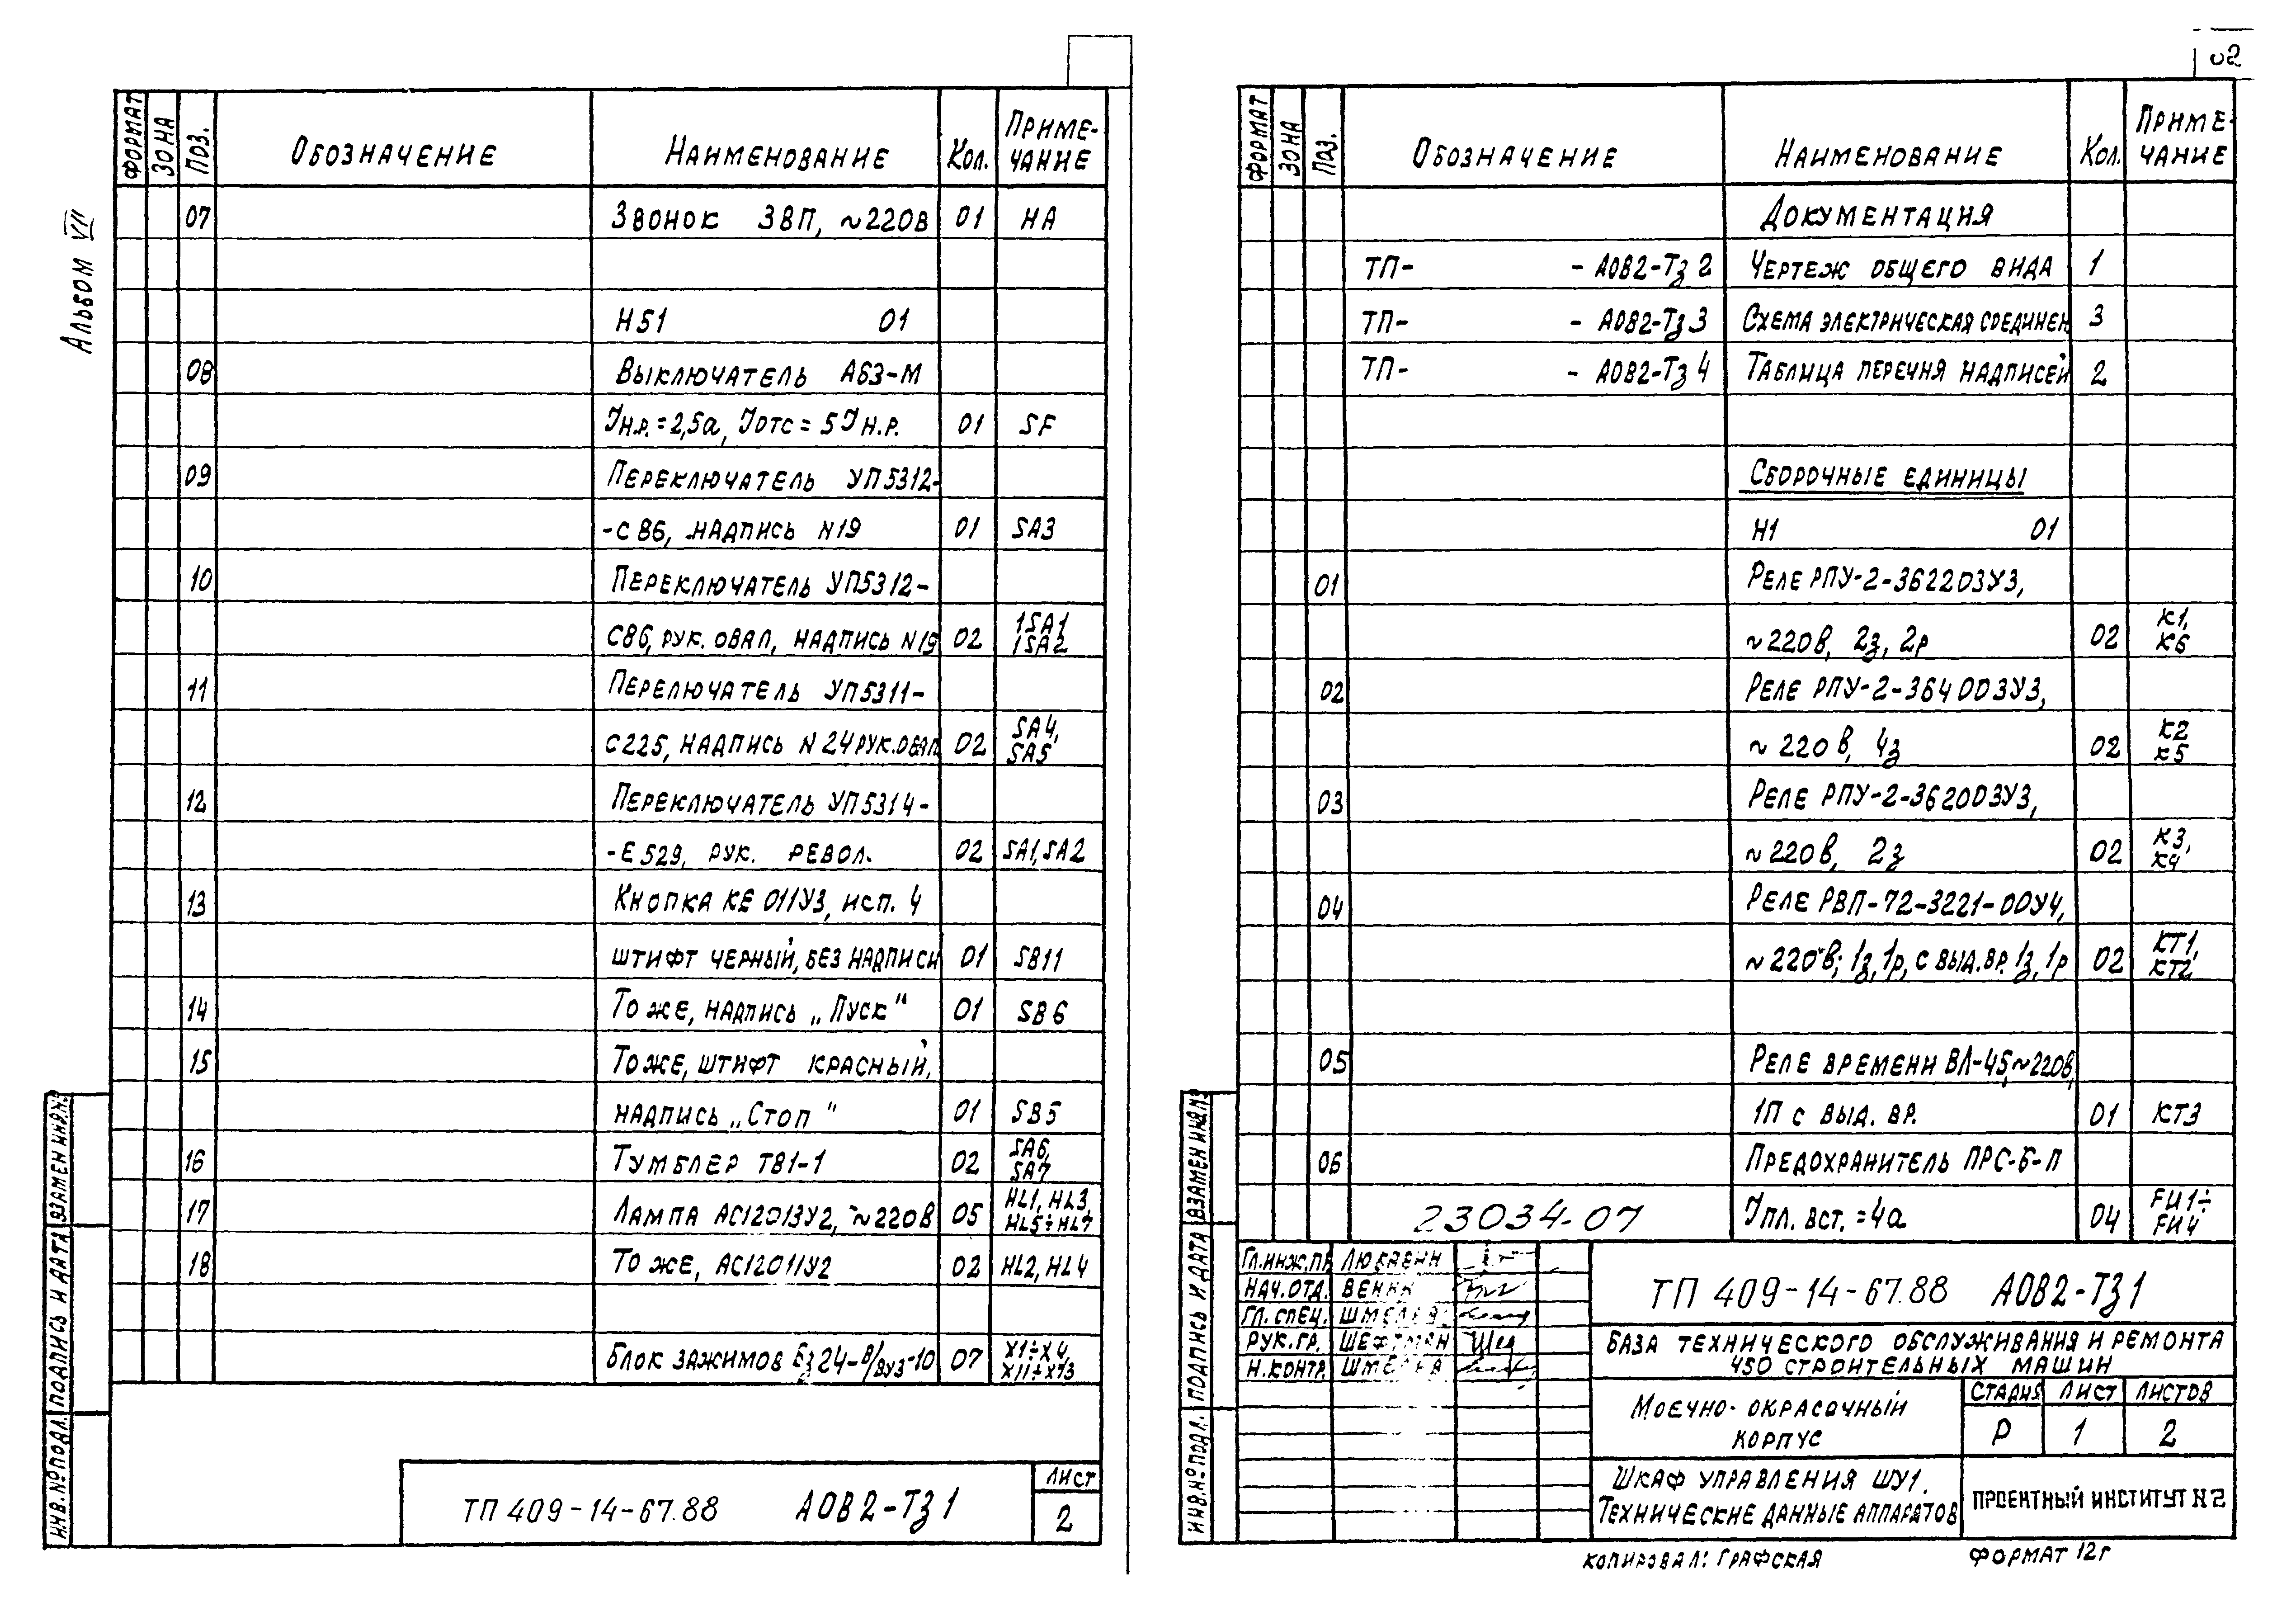 Альбом VII
ФОРМАТ ЗОНА ПОЗ. ОБОЗНАЧЕНИЕ НАИМЕНОВАНИЕ КОЛ. ПРИМЕ-
ЧАНИЕ
07 ЗВОНОК ЗВП, ~220В 01 НА
Н51 01
08 ВЫКЛЮЧАТЕЛЬ А63-М
Iн.р.=2,5а, Iотс=5Iн.р. 01 SF
09 ПЕРЕКЛЮЧАТЕЛЬ УП5312-
-С86, НАДПИСЬ N19 01 SA3
10 ПЕРЕКЛЮЧАТЕЛЬ УП5312-
С86, РУК. ОВАЛ, НАДПИСЬ N19 02 1SA1
1SA2
11 ПЕРЕЛЮЧАТЕЛЬ УП5311-
С225, НАДПИСЬ N24 РУК.ОВАЛ 02 SA4,
SA5
12 ПЕРЕКЛЮЧАТЕЛЬ УП5314-
-Е529, РУК. РЕВОЛ. 02 SA1, SA2
13 КНОПКА КЕ 011У3, ИСП. 4
ШТИФТ ЧЕРНЫЙ, БЕЗ НАДПИСИ 01 SB11
14 ТО ЖЕ, НАДПИСЬ „ПУСК“ 01 SB6
15 ТО ЖЕ, ШТИФТ КРАСНЫЙ,
НАДПИСЬ „СТОП“ 01 SB5
16 ТУМБЛЕР ТВ1-1 02 SA6,
SA7
17 ЛАМПА АС12013У2, ~220В 05 HL1, HL3,
HL5÷HL7
18 ТО ЖЕ, АС12011У2 02 HL2, HL4
БЛОК ЗАЖИМОВ Бз24-В/ВУ3-10 07 X1÷X4,
X11÷X13
ВЗАМЕН ИНВ.№
ПОДПИСЬ И ДАТА
ИНВ.№ ПОДЛ.
ТП 409-14-67.88 АОВ2-ТЗ1
ЛИСТ
2
02
ФОРМАТ ЗОНА ПОЗ. ОБОЗНАЧЕНИЕ НАИМЕНОВАНИЕ КОЛ. ПРИМЕ-
ЧАНИЕ
ДОКУМЕНТАЦИЯ
ТП- - АОВ2-ТЗ2 ЧЕРТЕЖ ОБЩЕГО ВИДА 1
ТП- - АОВ2-ТЗ3 СХЕМА ЭЛЕКТРИЧЕСКАЯ СОЕДИНЕН 3
ТП- - АОВ2-ТЗ4 ТАБЛИЦА ПЕРЕЧНЯ НАДПИСЕЙ 2
СБОРОЧНЫЕ ЕДИНИЦЫ
Н1 01
01 РЕЛЕ РПУ-2-362203У3,
~220В, 2з, 2р 02 К1,
К6
02 РЕЛЕ РПУ-2-364003У3,
~220В, 4з 02 К2
К5
03 РЕЛЕ РПУ-2-362003У3,
~220В, 2з 02 К3,
К4
04 РЕЛЕ РВП-72-3221-00У4,
~220В; 1з, 1р, С ВЫД.ВР. 1з, 1р 02 КТ1,
КТ2
05 РЕЛЕ ВРЕМЕНИ ВЛ-45, ~220В,
1П С ВЫД. ВР. 01 КТ3
06 ПРЕДОХРАНИТЕЛЬ ПРС-6-П
23034-07 Iпл. вст.=4а 04 FU1÷
FU4
ВЗАМЕН ИНВ.№
ПОДПИСЬ И ДАТА
ИНВ.№ ПОДЛ.
ГЛ.ИНЖ.ПР. ЛЮБАВИН
НАЧ.ОТД.
ГЛ.СПЕЦ.
РУК.ГР. ШЕФТМАН
Н.КОНТР.
ТП 409-14-67.88 АОВ2-ТЗ1
БАЗА ТЕХНИЧЕСКОГО ОБСЛУЖИВАНИЯ И РЕМОНТА
450 СТРОИТЕЛЬНЫХ МАШИН
МОЕЧНО-ОКРАСОЧНЫЙ
КОРПУС
СТАДИЯ ЛИСТ ЛИСТОВ
Р 1 2
ШКАФ УПРАВЛЕНИЯ ШУ1.
ТЕХНИЧЕСКИЕ ДАННЫЕ АППАРАТОВ
ПРОЕКТНЫЙ ИНСТИТУТ N2
КОПИРОВАЛ: ГРАФСКАЯ ФОРМАТ 12Г